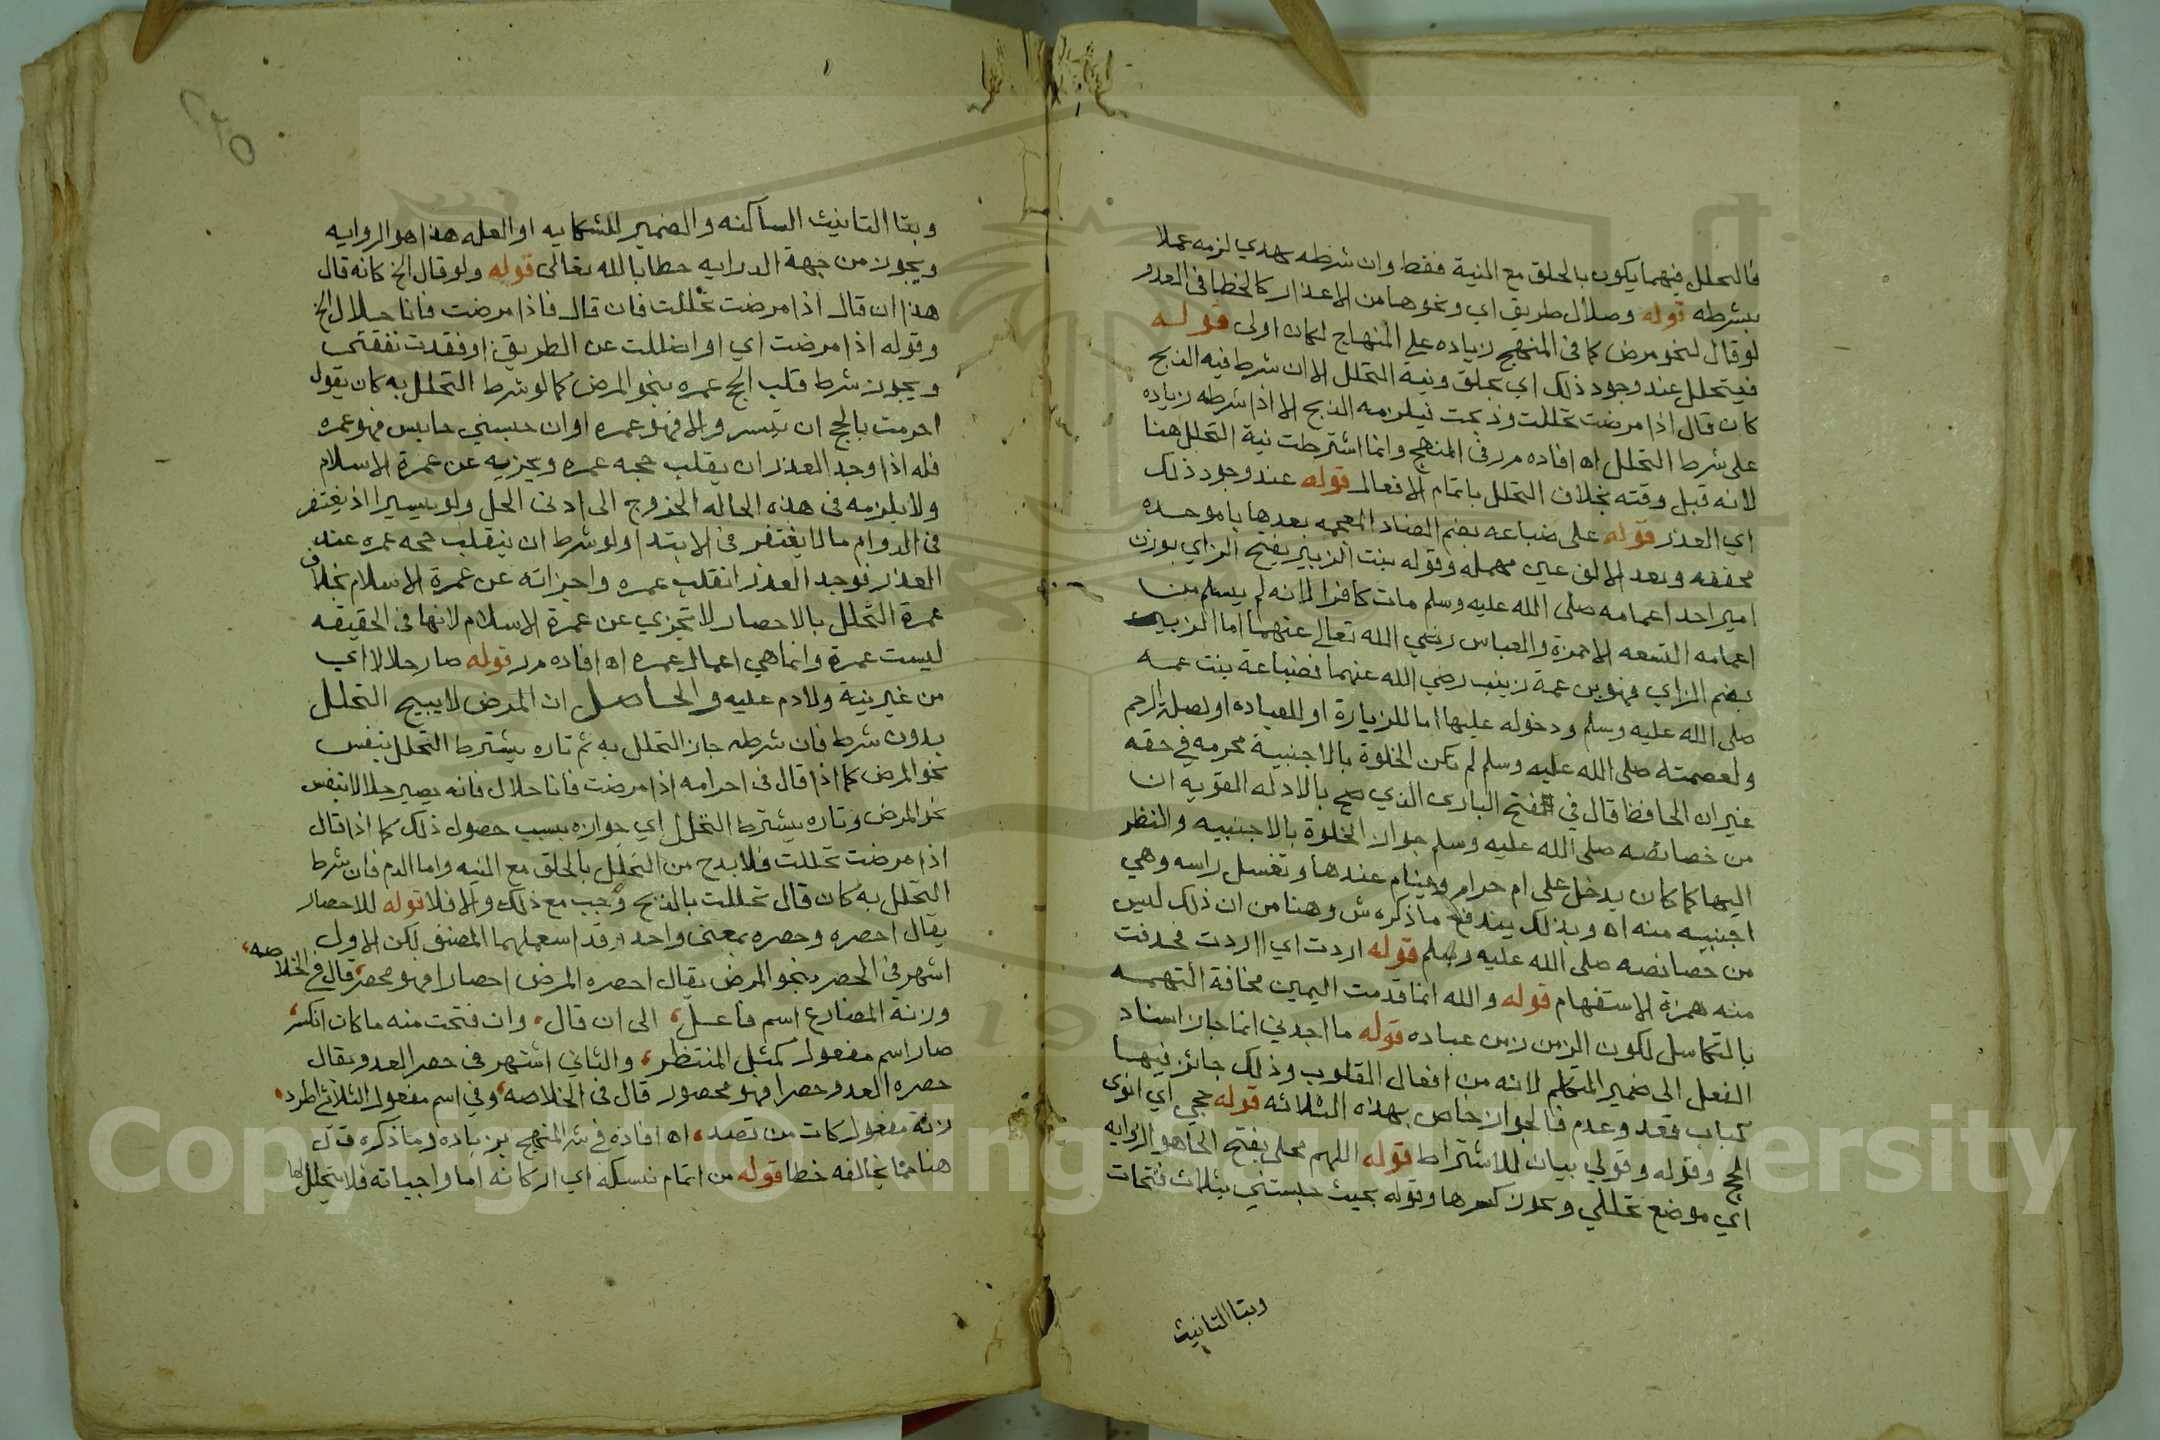 فالتحلل فيهما يكون بالحلق مع النية فقط وان شرطه بهدي لزمه عملا
بشرطه قوله وضلال طريق اي ونحوها من الاعذار كالخطا في العدد
لو قال لنحو مرض كما في المنهج زياده على المنهاج لكان اولى قوله
فيتحلل عند وجود ذلك اي بحلق ونية التحلل الا ان شرط فيه الذبح
كان قال اذا مرضت تحللت وذبحت فيلزمه الذبح الا اذا شرطه زياده
على شرط التحلل اه افاده م ر في المنهج وانما اشترطت نية التحلل هنا
لانه قبل وقته بخلاف التحلل باتمام الافعال قوله عند وجود ذلك
اي العذر قوله على ضباعه بضم الضاد المعجمه بعدها با موحده
مخففه وبعد الالف عين مهمله وقوله بنت الزبير بفتح الزاي بوزن
امير احد اعمامه صلى الله عليه وسلم مات كافرا لانه لم يسلم من
اعمامه التسعه الا حمزة والعباس رضي الله تعالى عنهما اما الزبير
بضم الزاي فهو بن عمة زينب رضي الله عنهما فضباعة بنت عمه
صلى الله عليه وسلم ودخوله عليها اما للزيارة او للعياده او لصلة الرحم
ولعصمته صلى الله عليه وسلم لم تكن الخلوة بالاجنبية محرمه في حقه
غير ان الحافظ قال في فتح البارى الذي صح بالادله القويه ان
من خصائصه صلى الله عليه وسلم جواز الخلوة بالاجنبيه والنظر
اليها كما كان يدخل على ام حرام وينام عندها وتغسل راسه وهي
اجنبيه منه اه وبذلك يندفع ما ذكره ش وهنا من ان ذلك ليس
من خصائصه صلى الله عليه وسلم قوله اردت اي ااردت فحذفت
منه همزة الاستفهام قوله والله انما قدمت اليمين مخافة التهمه
بالتكاسل لكون الزمن زمن عباده قوله ما اجدني انما جاز اسناد
الفعل الى ضمير المتكلم لانه من افعال القلوب وذلك جائز فيها
كباب فقد وعدم فالجواز خاص بهذه الثلاثه قوله حجي اي انوى
الحج وقوله وقولي بيان للاشتراط قوله اللهم محلى بفتح الحا هو الروايه
اي موضع تحللي ويجوز كسرها وقوله بحيث حبستني بثلاث فتحات
وبتا التانيث
وبتا التانيث الساكنه والضمير للشكايه او العله هذا هو الروايه
ويجوز من جهة الدرايه خطابا لله تعالى قوله ولو قال الخ كانه قال
هذا ان قال اذا مرضت تحللت فان قال فاذا مرضت فانا حلال الخ
وقوله اذا مرضت اي او اضللت عن الطريق او فقدت نفقتي
ويجوز شرط قلب الحج عمره بنحو المرض كما لو شرط التحلل به كان يقول
احرمت بالحج ان تيسر والا فهو عمره او ان حبسني حابس فهو عمره
فله اذا وجد العذر ان يقلب حجه عمره ويجزيه عن عمرة الاسلام
ولا يلزمه في هذه الحاله الخروج الى ادنى الحل ولو بيسير ا اذ يغتفر
في الدوام ما لا يغتفر في الابتدا ولو شرط ان ينقلب حجه عمره عند
العذر فوجد العذر انقلب عمره واجزاته عن عمرة الاسلام بخلاف
عمرة التحلل بالاحصار لا تجزي عن عمرة الاسلام لانها في الحقيقه
ليست عمرة وانما هي اعمال عمره اه افاده م ر قوله صار حلالا اي
من غير نية ولا دم عليه والحاصل ان المرض لا يبيح التحلل
بدون شرط فان شرطه جاز التحلل به ثم تاره يشترط التحلل بنفس
نحو المرض كما اذا قال في احرامه اذا مرضت فانا حلال فانه يصير حلالا بنفس
نحو المرض وتاره يشترط التحلل اي جوازه بسبب حصول ذلك كما اذا قال
اذا مرضت تحللت فلا بد ح من التحلل بالحلق مع النيه واما الدم فان شرط
التحلل به كان قال تحللت بالذبح وجب مع ذلك والا فلا قوله للاحصار
يقال احصره وحصره بمعنى واحد وقد استعملهما المصنف لكن الاول
اشهر في الحصر بنحو المرض يقال احصره المرض احصارا فهو محصر قال في الخلاصه
وزنة المضارع اسم فاعل الى ان قال وان فتحت منه ما كان انكسر
صار اسم مفعول كمثل المنتظر والثاني اشتهر في حصر العدو يقال
حصره العدو حصرا فهو محصور قال في الخلاصه وفي اسم مفعول الثلاثي اطرد
زنة مفعول كات من قصد اه افاده في شر المنهج بزياده وما ذكره ق ل
هنا مما يخالفه خطا قوله من اتمام نسكه اي اركانه اما واجباته فلا يتحلل لها